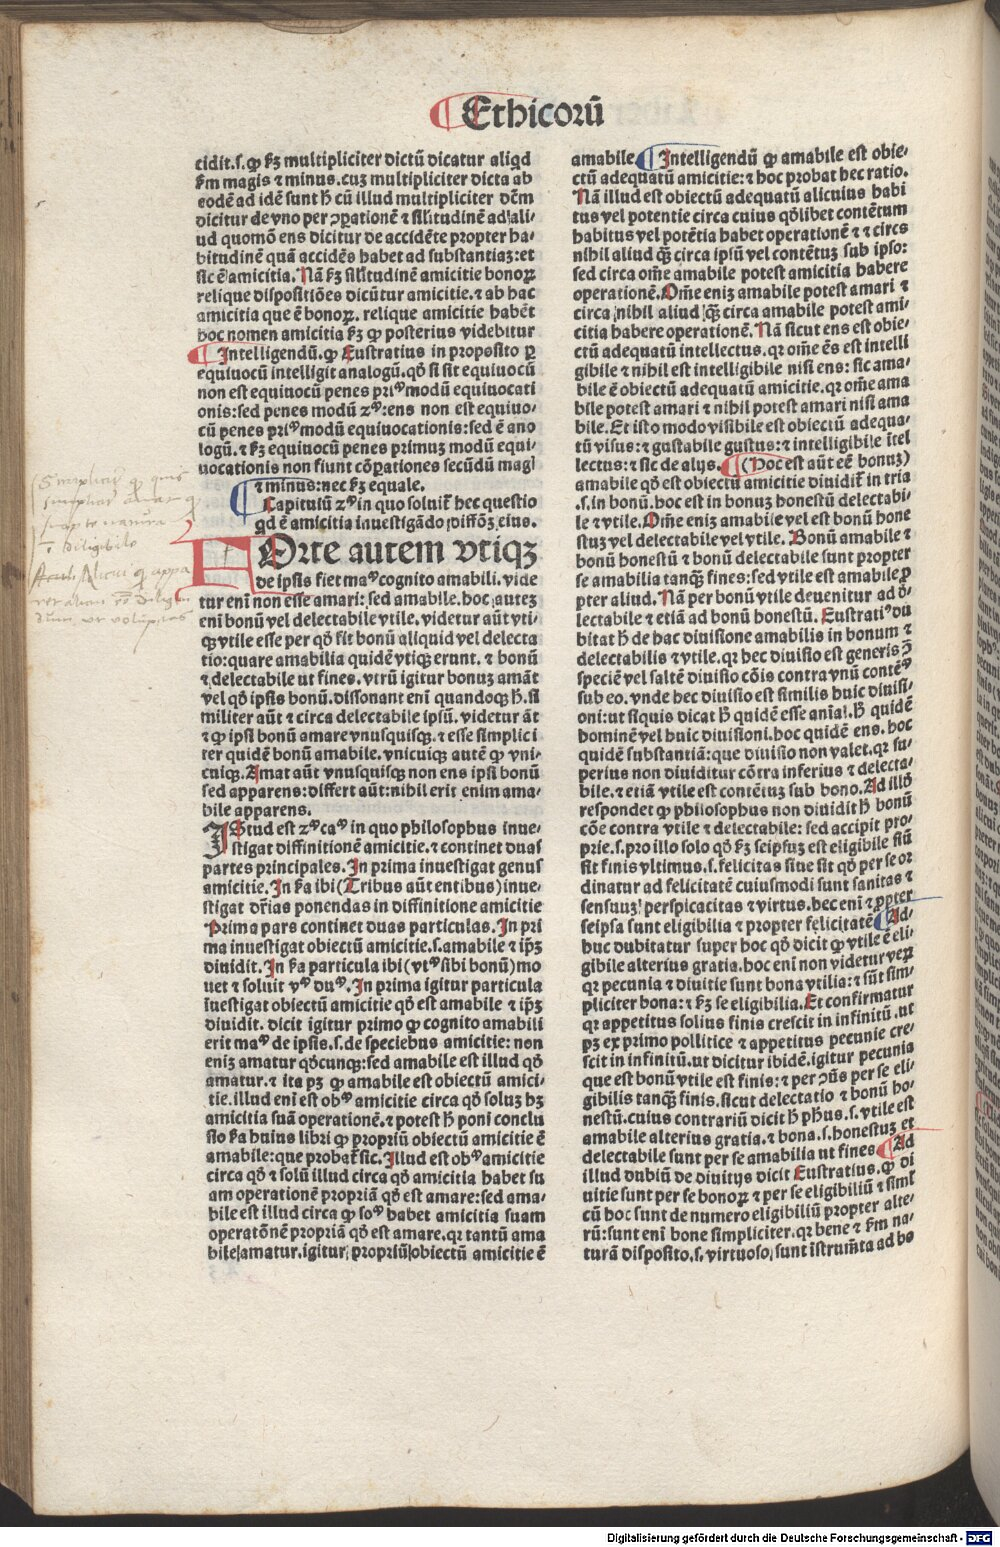 Ethicorū
cidit.s. ꝙ ẜꝫ multipliciter dictū dicatur aliqd
ẜm magis ⁊ minus.cuꝫ multipliciter dicta ab
eodē ad idē sunt h̄ cū illud multipliciter dc̄m
dicitur de vno per ꝓpationē ⁊ sil'itudinē ad ali⸗
ud quomō ens dicitur de accidēte propter ha⸗
bitudinē quā accidēs habet ad substantiaꝫ:et
sic ē amicitia. Nā ẜꝫ sil'itudinē amicitie bonoꝝ
relique dispositiōes dicūtur amicitie.⁊ ab hac
amicitia que ē bonoꝝ. relique amicitie habēt
hoc nomen amicitia ẜꝫ ꝙ posterius videbitur
Intelligendū. ꝙ Eustratius in proposito ꝑ
equiuocū intelligit analogū. qō si sit equiuocū
non est equiuocū penes priᵐ modū equiuocati
onis:sed penes modū 2ᵐ:ens non est equiuo⸗
cū penes priᵐ modū equiuocationis:sed ē ano
logū.⁊ ẜꝫ equiuocū penes primuꝫ modū equi⸗
uocationis non fiunt cōꝑationes secūdū magi
⁊ minus:nec ẜꝫ equale.
Capitulū 2ᵐ in quo soluit̄ hec questio
qd ē amicitia inuestigādo diffōꝫ eius.
FOrte autem vtiqꝫ
de ipsis fiet maᵐ cognito amabili. vide
tur eni non esse amari: sed amabile.hoc auteꝫ
eni bonū vel delectabile vtile. videtur aūt vti⸗
qꝫ vtile esse per qō fit bonū aliquid vel delecta
tio:quare amabilia quidē vtiqꝫ erunt. ⁊ bonū
⁊ delectabile ut fines. vtrū igitur bonuꝫ amāt
vel qō ipsis bonū.dissonant eni quandoqꝫ h̄.si
militer aūt ⁊ circa delectabile ipsū. videtur āt
⁊ ꝙ ipsi bonū amare vnusquisqꝫ. ⁊ esse simplici
ter quidē bonū amabile. vnicuiqꝫ autē ꝙ vni⸗
cuiqꝫ. Amat aūt vnusquisqꝫ non ens ipsi bonū
sed apparens:differt aūt:nihil erit enim ama⸗
bile apparens.
IStud est 2ᵐ caᵐ in quo philosophus inue⸗
stigat diffinitionē amicitie.⁊ continet duas
partes principales. In prima inuestigat genus
amicitie. In ẜa ibi (Tribus aūt entibus) inue⸗
stigat dr̄ias ponendas in diffinitione amicitie
Prima pars continet duas particulas. In pri
ma inuestigat obiectū amicitie.s.amabile ⁊ ip̄ꝫ
diuidit. In ẜa particula ibi (vtᵐ sibi bonū) mo
uet ⁊ soluit vᵐ duᵐ. In prima igitur particula
inuestigat obiectū amicitie qō est amabile ⁊ ip̄ꝫ
diuidit. dicit igitur primo ꝙ cognito amabili
erit maᵐ de ipsis.s.de speciebus amicitie: non
eniꝫ amatur qōcunqꝫ:sed amabile est illud qō
amatur.⁊ ita pꝫ ꝙ amabile est obiectū amici⸗
tie.illud eni est obᵐ amicitie circa qō soluꝫ hꝫ
amicitia suā operationē.⁊ potest h̄ poni conclu
sio ẜa huius libri ꝙ propriū obiectū amicitie ē
amabile:que probat̄ sic. Illud est obᵐ amicitie
circa qō ⁊ solū illud circa qō amicitia habet su
am operationē propriā qō est amare:sed ama⸗
bile est illud circa ꝙ soᵐ habet amicitia suam
operatōnē propriā qō est amare. qr tantū ama
bile amatur.igitur propriū obiectū amicitie ē
amabile. Intelligendū ꝙ amabile est obie⸗
ctū adequatū amicitie:⁊ hoc probat hec ratio.
Nā illud est obiectū adequatū alicuius habi
tus vel potentie circa cuius qōlibet contētum
habitus vel potētia habet operationē ⁊ ⁊ circs
nihil aliud qꝫ circa ipsū vel contētuꝫ sub ipso:
sed circa om̄e amabile potest amicitia habere
operationē. Om̄e eniꝫ amabile potest amari ⁊
circa nihil aliud qꝫ circa amabile potest ami⸗
citia habere operationē. Nā sicut ens est obie⸗
ctū adequatū intellectus. qr om̄e ēs est intelli
gibile ⁊ nihil est intelligibile nisi ens: sic ama⸗
bile ē obiectū adequatū amicitie. qr om̄e ama
bile potest amari ⁊ nihil potest amari nisi ama
bile. Et isto modo visibile est obiectū adequa⸗
tū visus:⁊ gustabile gustus:⁊ intelligibile ītel
lectus:⁊ sic de alijs. (Hoc est aūt eē bonuꝫ)
amabile qō est obiectū amicitie diuidit̄ in tria
.s.in bonū.hoc est in bonuꝫ honestū delectabi⸗
le ⁊ vtile. Om̄e eniꝫ amabile vel est bonū hone
stuꝫ vel delectabile vel vtile. Bonū amabile ⁊
bonū honestū ⁊ bonū delectabile sunt propter
se amabilia tanqꝫ fines:sed vtile est amabile ꝓ
pter aliud. Nā per bonū vtile deuenitur ad d̄⸗
lectabile ⁊ etiā ad bonū honestū. Eustratiꝰ du
bitat h̄ de hac diuisione amabilis in bonum ⁊
delectabilis ⁊ vtile. qr hec diuisio est generis ī
speciē vel saltē diuisio cōis contra vnū contēᵐ
sub eo. vnde hec diuisio est similis huic diuisi⸗
oni:ut siquis dicat h̄ quidē esse aīal.h̄ quidē
hominē vel huic diuisioni.hoc quidē ens. hoc
quidē substantiā:que diuisio non valet.qr su⸗
perius non diuiditur cōtra inferius ⁊ delecta⸗
bile.⁊ etiā vtile est contētuꝫ sub bono. Ad illō
respondet ꝙ philosophus non diuidit h̄ bonū
cōe contra vtile ⁊ delectabile: sed accipit pro⸗
prie.s.pro illo solo qō ẜꝫ seipsuꝫ est eligibile siū
sit finis vltimus.s.felicitas siue sit qō per se or
dinatur ad felicitatē cuiusmodi sunt sanitas ⁊
sensuuꝫ perspicacitas ⁊ virtus.hec eni ⁊ ꝓpter
seipsa sunt eligibilia ⁊ propter felicitatē Ad⸗
huc dubitatur super hoc qō dicit ꝙ vtile ē eli⸗
gibile alterius gratia.hoc eni non videtur veꝝ
qr pecunia ⁊ diuitie sunt bona vtilia:⁊ sūt sim⸗
pliciter bona:⁊ ẜꝫ se eligibilia. Et confirmatur
qr appetitus solius finis crescit in infinitū.ut
pꝫ ex primo pollitice ⁊ appetitus pecunie cre⸗
scit in infinitū.ut dicitur ibidē.igitur pecunia
que est bonū vtile est finis:⁊ per ꝯn̄s per se eli⸗
gibilis tanqꝫ finis.sicut delectatio ⁊ bonū ho⸗
nestū.cuius contrariū dicit h̄ ph̄us.s.vtile est
amabile alterius gratia.⁊ bona.s.honestuꝫ et
delectabile sunt per se amabilia ut fines Ad
illud dubiū de diuitijs dicit Eustratius. ꝙ di
uitie sunt per se bonoꝝ ⁊ per se eligibiliū ⁊ siml'
cū hoc sunt de numero eligibiliū propter alte⸗
rū:sunt eni bone simpliciter. qr bene ⁊ ẜm na⸗
turā disposito.s.virtuoso sunt īstrum̄ta ad bo